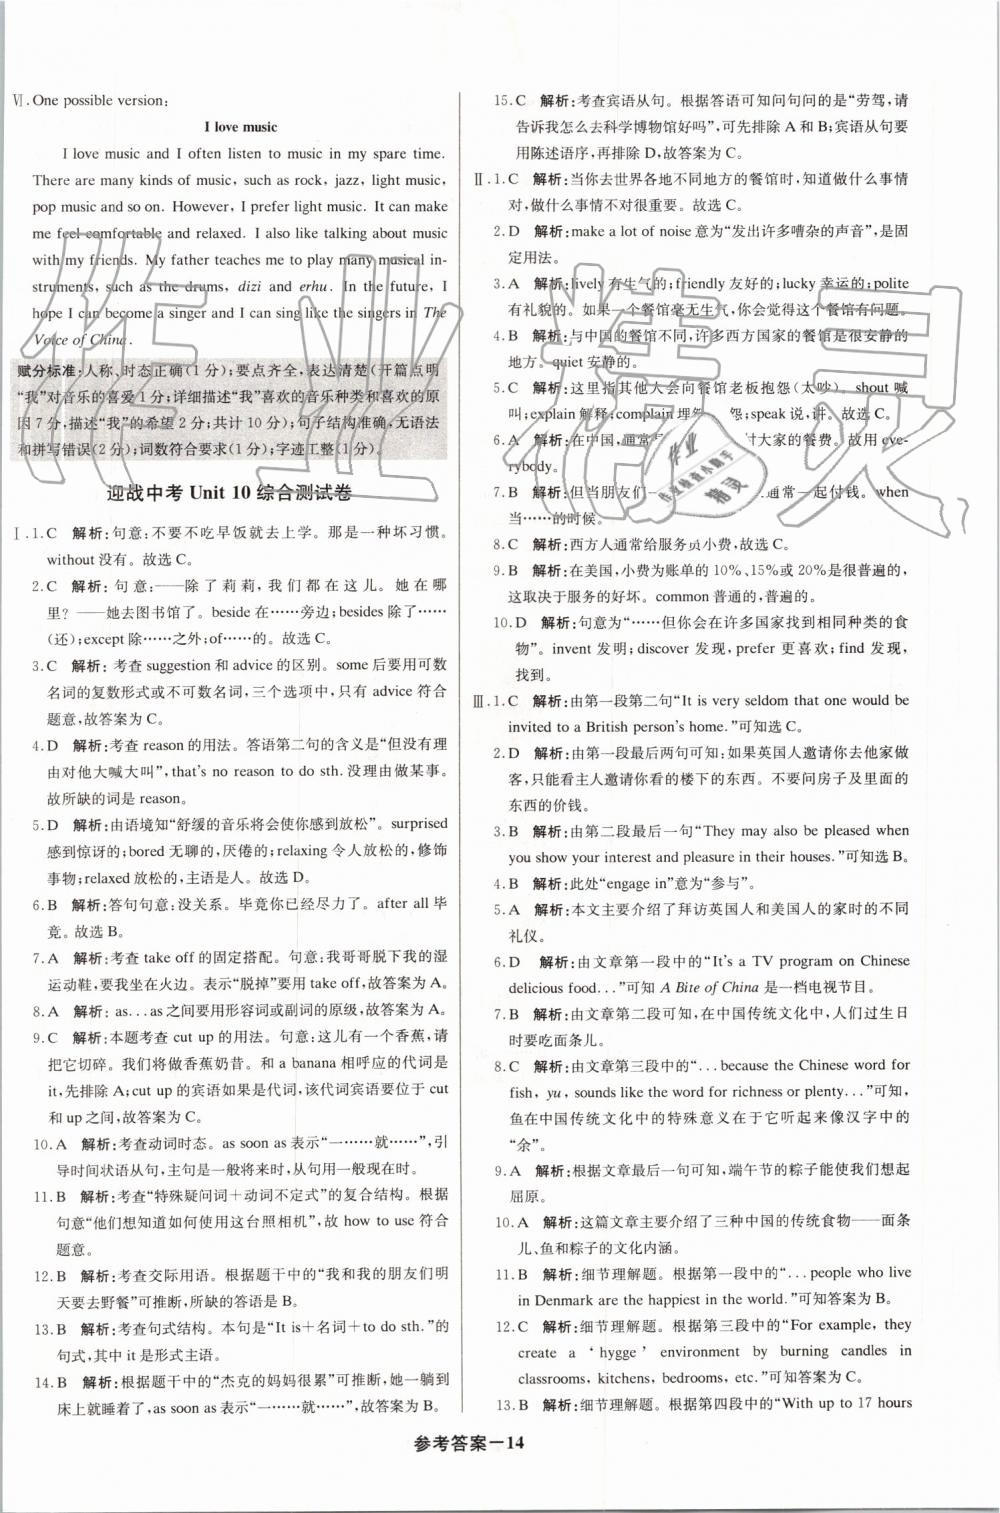 Ⅵ. One possible version:
I love music
I love music and I often listen to music in my spare time.
There are many kinds of music, such as rock, jazz, light music,
pop music and so on. However, I prefer light music. It can make
me feel comfortable and relaxed. I also like talking about music
with my friends. My father teaches me to play many musical in-
struments, such as the drums, dizi and erhu. In the future, I
hope I can become a singer and I can sing like the singers in The
Voice of China.
赋分标准:人称、时态正确(1分);要点齐全,表达清楚(开篇点明
“我”对音乐的喜爱1分;详细描述“我”喜欢的音乐种类和喜欢的原
因7分,描述“我”的希望2分;共计10分);句子结构准确,无语法
和拼写错误(2分);词数符合要求(1分);字迹工整(1分)。
迎战中考 Unit 10 综合测试卷
Ⅰ.1.C 解析:句意:不要不吃早饭就去上学。那是一种坏习惯。
without没有。故选C。
2.C 解析:句意:——除了莉莉,我们都在这儿。她在哪
里?——她去图书馆了。beside在……旁边;besides除了……
(还);except除……之外;of……的。故选C。
3.C 解析:考查suggestion和advice的区别。some后要用可数
名词的复数形式或不可数名词,三个选项中,只有advice符合
题意,故答案为C。
4.D 解析:考查reason的用法。答语第二句的含义是“但没有理
由对他大喊大叫”,that's no reason to do sth.没理由做某事。
故所缺的词是reason。
5.D 解析:由语境知“舒缓的音乐将会使你感到放松”。surprised
感到惊讶的;bored无聊的,厌倦的;relaxing令人放松的,修饰
事物;relaxed放松的,主语是人。故选D。
6.B 解析:答句句意:没关系。毕竟你已经尽力了。after all毕
竟。故选B。
7.A 解析:考查take off的固定搭配。句意:我哥哥脱下我的湿
运动鞋,要我坐在火边。表示“脱掉”要用take off,故答案为A。
8.A 解析:as...as之间要用形容词或副词的原级,故答案为A。
9.C 解析:本题考查cut up的用法。句意:这儿有一个香蕉,请
把它切碎。我们将做香蕉奶昔。和a banana相呼应的代词是
it,先排除A;cut up的宾语如果是代词,该代词宾语要位于cut
和up之间,故答案为C。
10.A 解析:考查动词时态。as soon as表示“一……就……”,引
导时间状语从句,主句是一般将来时,从句用一般现在时。
11.B 解析:考查“特殊疑问词+动词不定式”的复合结构。根据
句意“他们想知道如何使用这台照相机”,故how to use符合
题意。
12.B 解析:考查交际用语。根据题干中的“我和我的朋友们明
天要去野餐”可推断,所缺的答语是B。
13.B 解析:考查句式结构。本句是“It is+名词+to do sth.”的
句式,其中it是形式主语。
14.B 解析:根据题干中的“杰克的妈妈很累”可推断,她一躺到
床上就睡着了,as soon as表示“一……就……”,故答案为B。
15.C 解析:考查宾语从句。根据答语可知问句问的是“劳驾,请
告诉我怎么去科学博物馆好吗”,可先排除A和B;宾语从句要
用陈述语序,再排除D,故答案为C。
Ⅱ.1.C 解析:当你去世界各地不同地方的餐馆时,知道做什么事情
对,做什么事情不对很重要。故选C。
2.D 解析:make a lot of noise意为“发出许多嘈杂的声音”,是固
定用法。
3.A 解析:lively有生气的;friendly友好的;lucky幸运的;polite
有礼貌的。如果一个餐馆毫无生气,你会觉得这个餐馆有问题。
4.B 解析:与中国的餐馆不同,许多西方国家的餐馆是很安静的
地方。quiet安静的。
5.C 解析:这里指其他人会向餐馆老板抱怨(太吵)。shout喊
叫;explain解释;complain埋怨 怨;speak说,讲。故选C。
6.A 解析:在中国,通常 付大家的餐费。故用eve-
rybody。
7.B 解析:但当朋友们一 通常一起付钱。when
当……的时候。
8.C 解析:西方人通常给服务员小费,故选C。
9.B 解析:在美国,小费为账单的10%、15%或20%是很普遍的,
这取决于服务的好坏。common普通的,普遍的。
10.D 解析:句意为“……但你会在许多国家找到相同种类的食
物”。invent发明;discover发现,prefer更喜欢;find发现,
找到。
Ⅲ.1.C 解析:由第一段第二句“It is very seldom that one would be
invited to a British person's home.”可知选C。
2.D 解析:由第一段最后两句可知:如果英国人邀请你去他家做
客,只能看主人邀请你看的楼下的东西。不要问房子及里面的
东西的价钱。
3.B 解析:由第二段最后一句“They may also be pleased when
you show your interest and pleasure in their houses.”可知选B。
4.B 解析:此处“engage in”意为“参与”。
5.A 解析:本文主要介绍了拜访英国人和美国人的家时的不同
礼仪。
6.D 解析:由文章第一段中的“It's a TV program on Chinese
delicious food...”可知A Bite of China是一档电视节目。
7.B 解析:由文章第二段可知,在中国传统文化中,人们过生日
时要吃面条儿。
8.C 解析:由文章第三段中的“...because the Chinese word for
fish, yu, sounds like the word for richness or plenty...”可知,
鱼在中国传统文化中的特殊意义在于它听起来像汉字中的
“余”。
9.A 解析:根据文章最后一句可知,端午节的粽子能使我们想起
屈原。
10.A 解析:这篇文章主要介绍了三种中国的传统食物——面条
儿、鱼和粽子的文化内涵。
11.B 解析:细节理解题。根据第一段中的“...people who live
in Denmark are the happiest in the world.”可知答案为B。
12.C 解析:细节理解题。根据第三段中的“For example, they
create a ‘hygge’ environment by burning candles in
classrooms, kitchens, bedrooms, etc.”可知答案为C。
13.B 解析:细节理解题。根据第四段中的“With up to 17 hours
参考答案—14